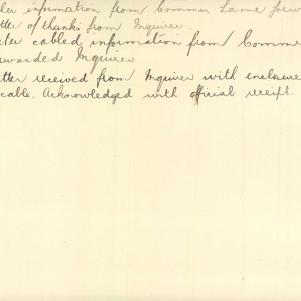 information from Commr Lame forw
tter of thanks from Inquirer.
ter cabled information from Comme
rwarded Inquirer
tter received from Inquirer with enclosure
cable. Acknowledged with official receipt.